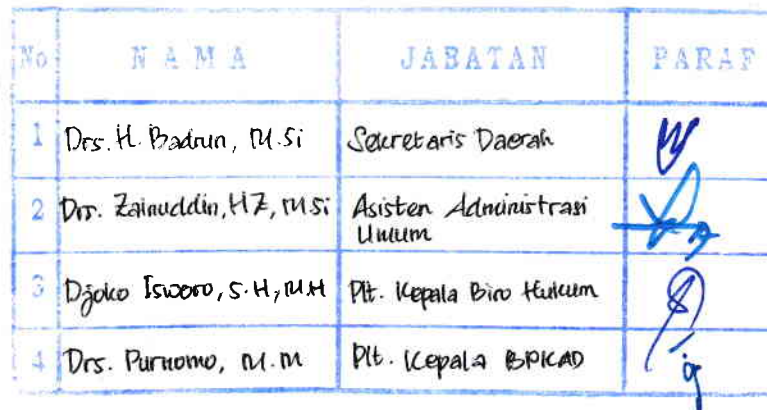 No NAMA JABATAN PARAF
1 Drs. H. Badrun, M.Si Sekretaris Daerah
2 Drs. Zainuddin, HZ, M.Si Asisten Administrasi
Umum
3 Djoko Isworo, S.H, M.H Plt. Kepala Biro Hukum
4 Drs. Purnomo, M.M Plt. Kepala BPKAD